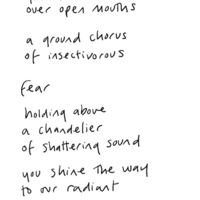 over open mouths
a ground chorus
of insectivorous
fear
holding above
a chandelier
of shattering sound
you shine the way
to our radiant